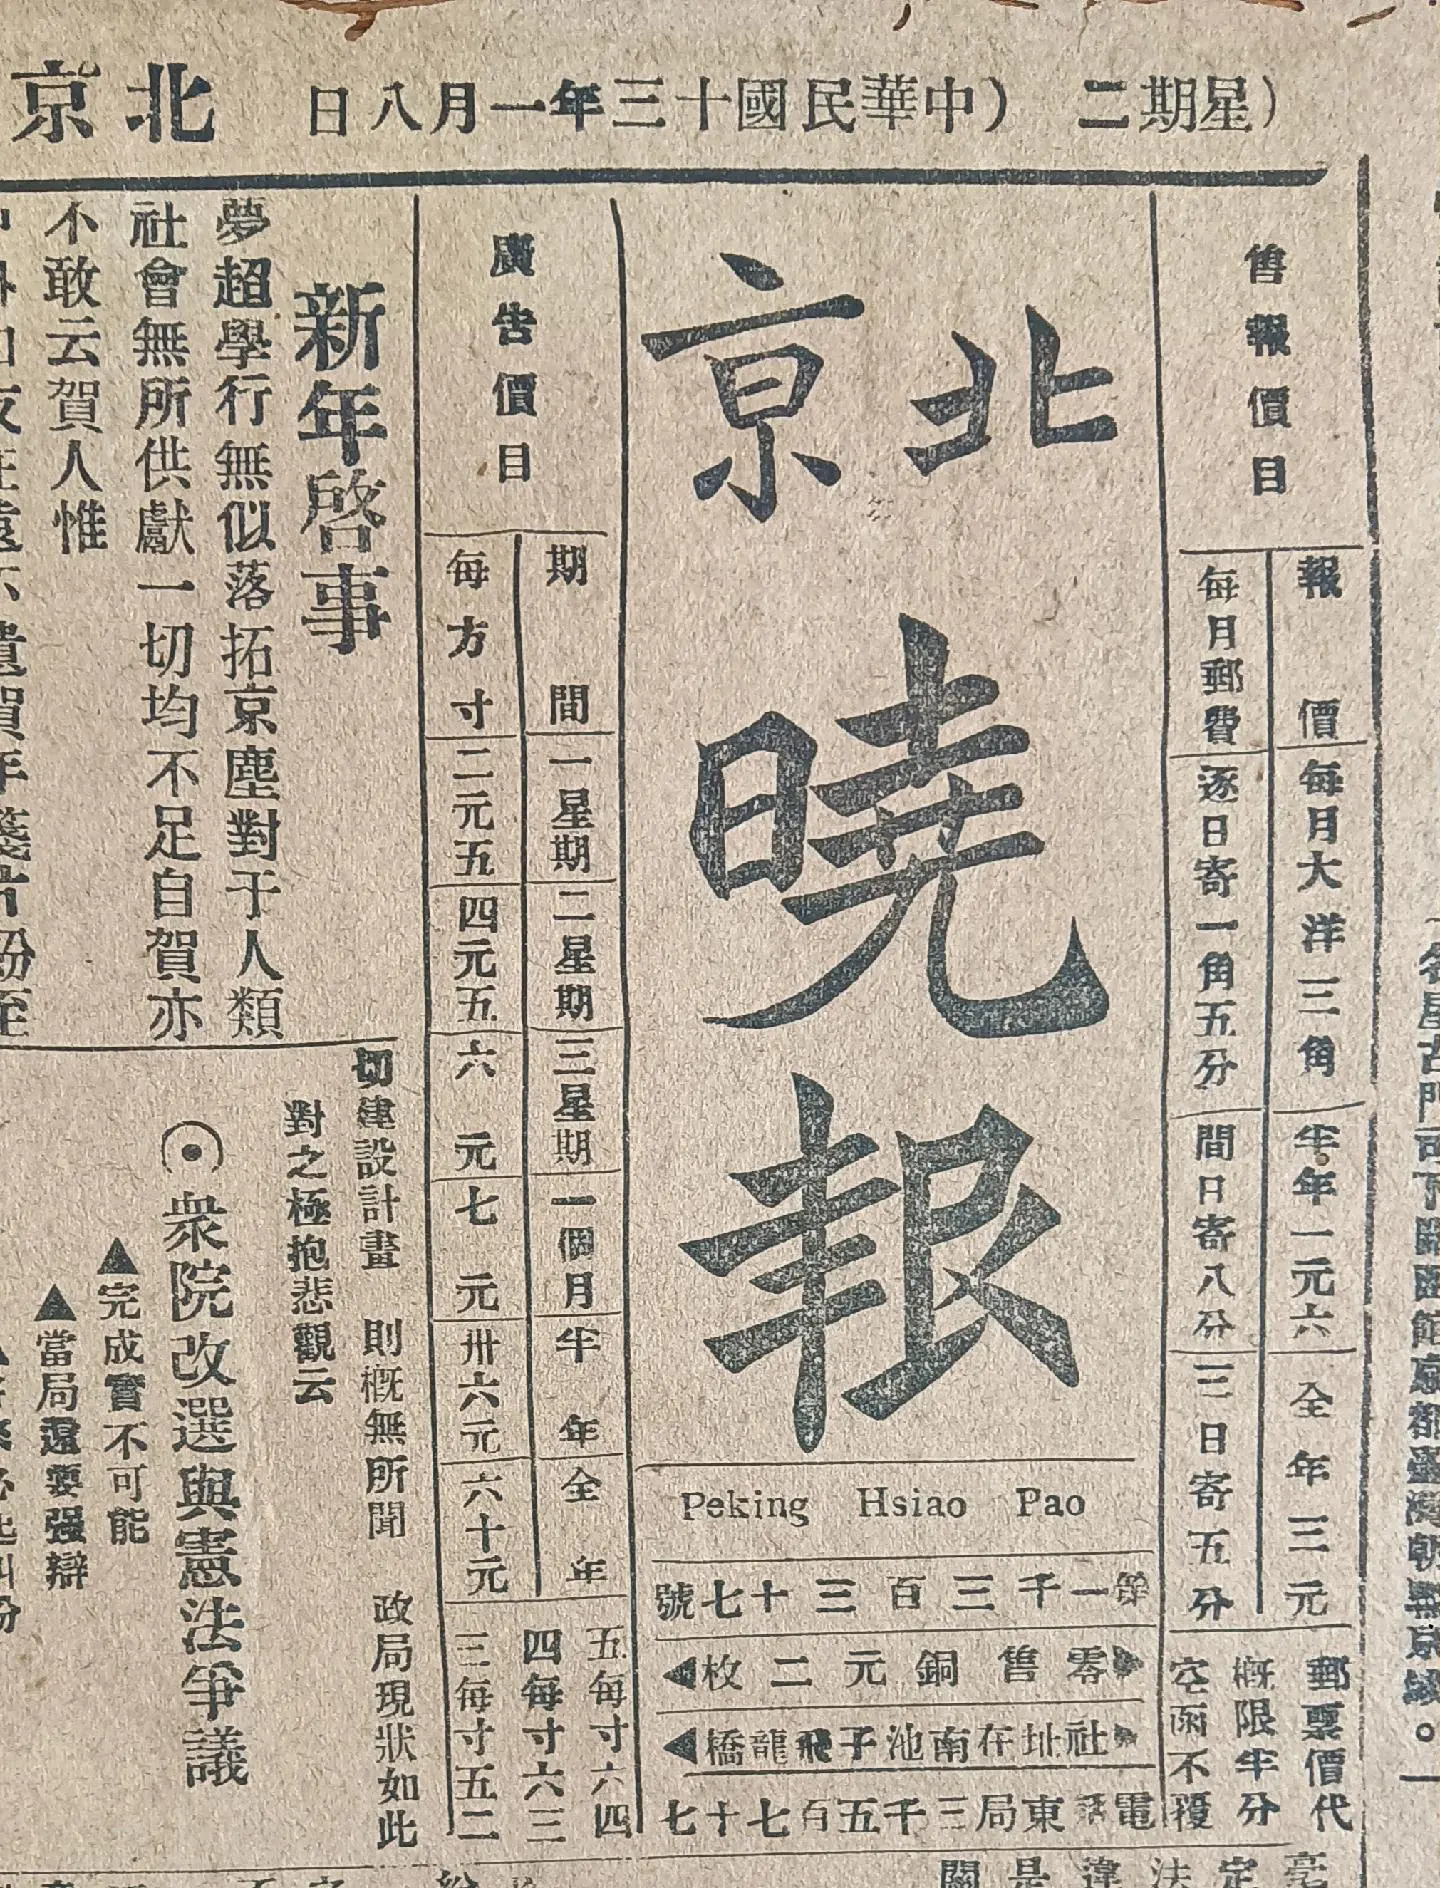 (星期二　(中華民國十三年一月八日　北京
售報價目
報價
每月大洋三角
半年一元六
全年三元
每月郵費
逐日寄一角五分
間日寄八分
三日寄五分
郵票價代
概限半分
空函不覆
北京
曉報
Peking Hsiao Pao
第一千三百三十七號
零售銅元二枚
社址在南池子飛龍橋
電話東局三千五百七十七
廣告價目
期間
一星期
二星期
三星期
一個月
半年
全年
每方寸
二元五
四元五
六元
七元
卅六元
六十元
五每寸六四
四每寸六三
三每寸五二
新年啓事
夢超學行無似落拓京塵對于人類
社會無所供獻一切均不足自賀亦
不敢云賀人惟
切建設計畫　則概無所聞　政局現狀如此
對之極抱悲觀云
衆院改選與憲法爭議
▲完成實不可能
▲當局還要强辯
毫定法違是關